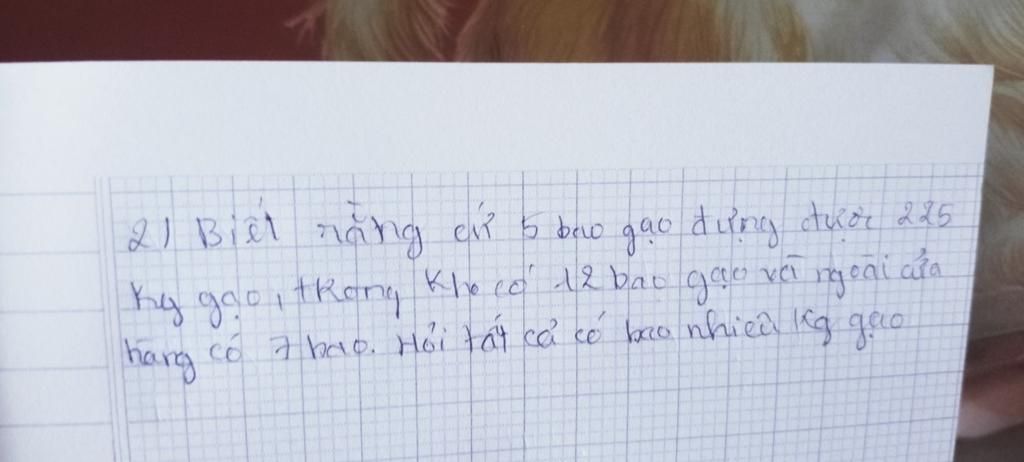 2) Biết nằng cứ 5 bao gạo đựng được 225
kg gạo, trong kho có 12 bao gạo và ngoài cửa
hàng có 7 bao. Hỏi tất cả có bao nhiêu kg gạo